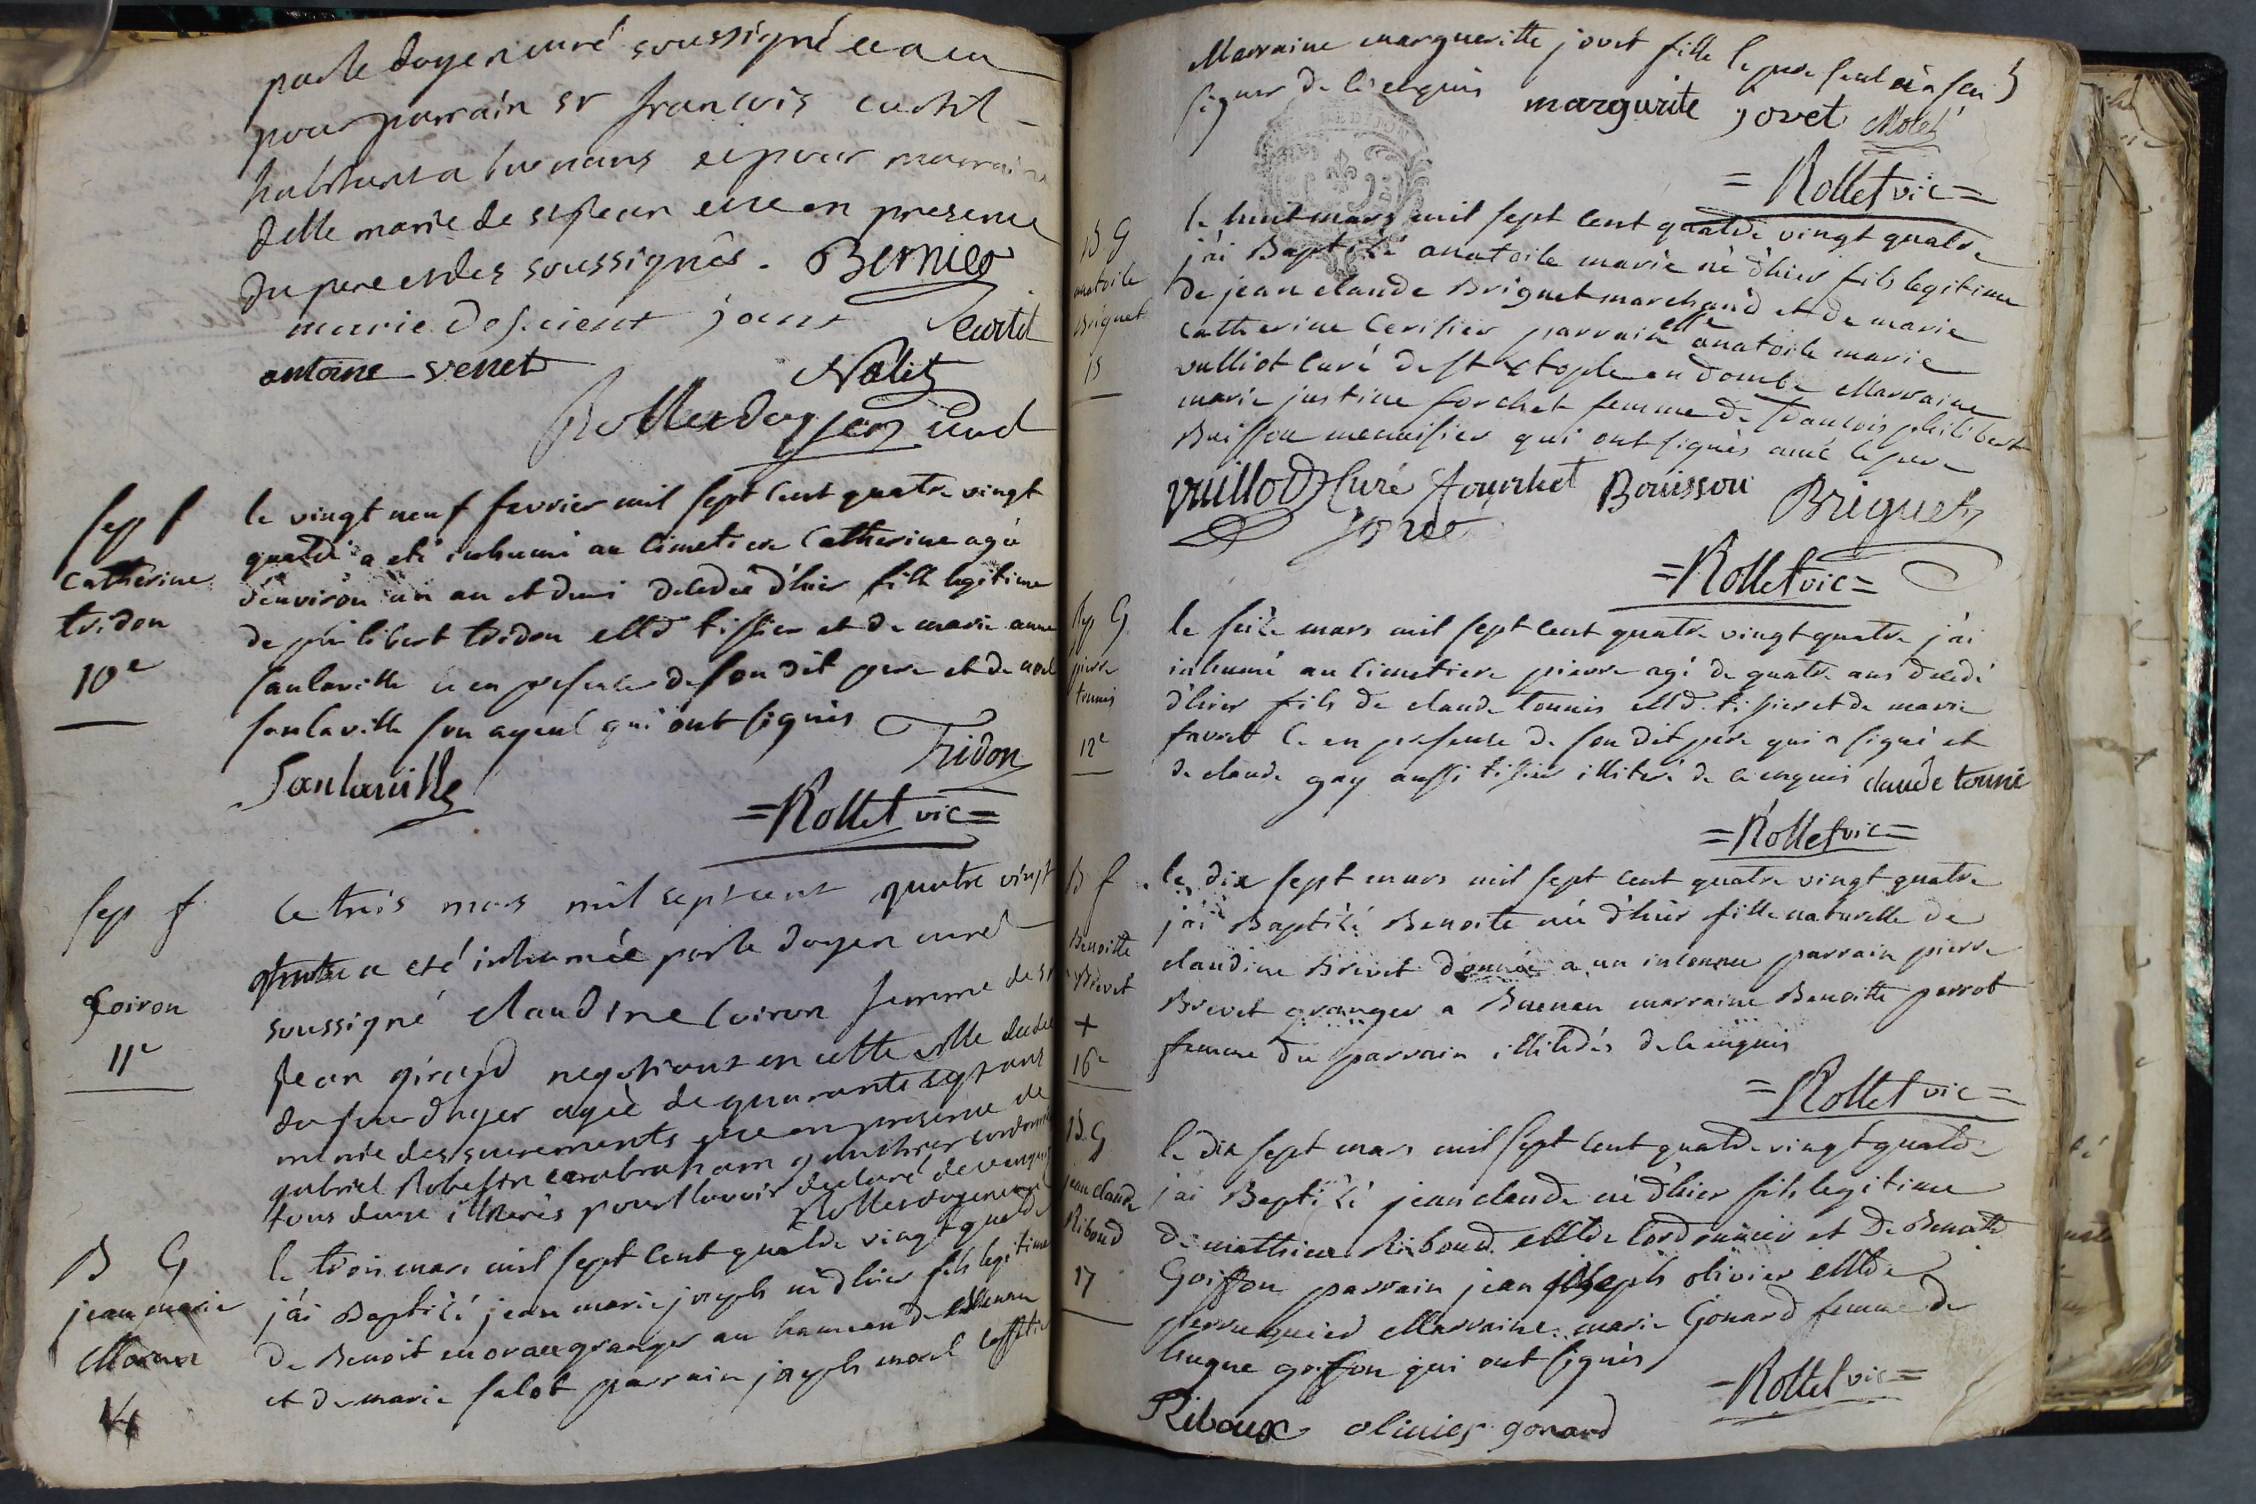 par le doyen curé soussigné et a eu
pour parrain sr francois curtil
habitant a buenans et pour marraine
delle marie de st jean et ce en presence
du pere et des soussignés. Bernier
marie desaient jouns Curtil
antoine venet Nölit
Rollet doyen curé
sep f
Catherine
tridon
10e
le vingt neuf fevrier mil sept cent quatre vingt
quatre a eté inhumé au cimetiere Catherine agée
d'environ un an et demi decedée d'hier fille legitime
de philibert tridon mtd tissier et de marie anne
sanlaville ce en presence de son dit pere et de noel
sanlaville son ayeul qui ont signés
Tridon
Sanlaville
=Rollet vic=
sep f
Coiron
11e
Ce trois mars mil sept cent quatre vingt
quatre a eté inhumée par le doyen curé
soussigné claudine Coiron femme de sr
Jean girard negotiant en cette ville decedée
du jour d'hyer ageé de quarante sept ans
munie des sacrements et ce en presence de
gabriel Robestre et abraham gonthier cordonniers
tous deux illiterés pour l'avoir declaré de ce enquis
Rollet doyen curé
B G
jean marie
Moran
14
le trois mars mil sept cent quatre vingt quatre
j'ai Baptisé jean marie joseph né d'hier fils legitime
de Benoit moran granger au hameau de
et de marie falot parrain joseph morel
Marraine margueritte jovet fille le pere seul a sçu
signer de ce enquis margurite jovet Molet
=Rollet vic=
B G
anatoile
Briguet
15
le huit mars mil sept cent quatre vingt quatre
j'ai Baptisé anatoile marie né d'hier fils legitime
de jean claude Briguet marchand et de marie
catherine Cerisier parrain mtre anatoile marie
vulliot curé de st xtople en dombe Marraine
marie justine forchet femme de francois philibert
Buisson menuisier qui ont signés avec le pere
vuillot Curé fourchet Bouisson Briguet
=Rollet vic=
Sep G
pierre
tounis
12e
le seize mars mil sept cent quatre vingt quatre j'ai
inhumé au cimetiere pierre agé de quatre ans decedé
d'hier fils de claude tounis mtd. tissier et de marie
favret ce en presence de son dit pere qui a signé et
de claude gay aussi tissier illiteré de ce enquis claude tounié
=Rollet vic=
B f
Benoitte
Brevet
+
16e
le dix sept mars mil sept cent quatre vingt quatre
j'ai Baptisé Benoite née d'hier fille naturelle de
claudine Brevet donnée a un inconnu parrain pierre
Brevet granger a Buenan marraine Benoitte perrot
femme du parrain illiterés de ce enquis
=Rollet vic=
B. G
jean claude
Riboud
17
le dix sept mars mil sept cent quatre vingt quatre
j'ai Baptisé jean claude né d'hier fils legitime
de mathieu Riboud mtre cordonnier et de Benoitte
Goiffon parrain jean joseph olivier mtre
perruquier Marraine marie Gonard femme de
hugue goiffon qui ont signés
=Rollet vic=
Riboux olivier gonard